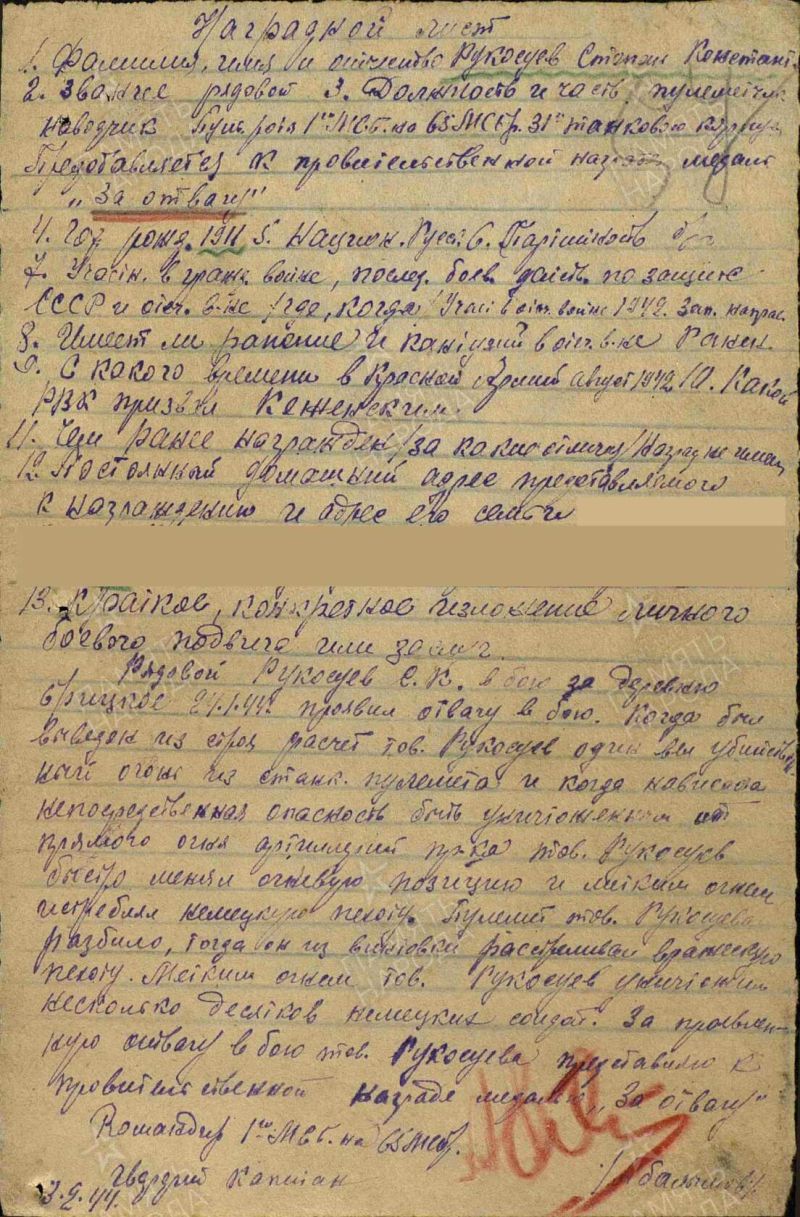 Наградной лист
1. Фамилия, имя и отчество Рукосуев Степан Констант.
2. Звание рядовой 3. Должность и часть пулеметчик
наводчик Пул. рота 1го МСб-на 65 МСбр. 31го танкового корпуса
Представляется к правительственной награде медаль
"За отвагу"
4. Год рожд. 1911 5. Национ. Русс. 6. Партийность б/п
7. Участ. в гражд. войне, послед. боев. действ. по защите
СССР и отеч. в-не /где, когда/ Участ в от. войне 1942. Зап. направ.
8. Имеет ли ранение и контузий в отеч. в-не Ранен.
9. С какого времени в Красной Армии август 1942 10. Каким
РВК призван Кежемским.
11. Чем ранее награжден /за какие отличия/ Наград не имеет
12. Постоянный домашний адрес представляемого
к награждению и адрес его семьи
13. Краткое, конкретное изложение личного
боевого подвига или заслуг.
Рядовой Рукосуев С.К. в бою за деревню
24.1.44г. проявил отвагу в бою. Когда был
выведен из строя расчет тов. Рукосуев один вел убийствен-
ный огонь из станк. пулемета и когда нависала
непосредственная опасность быть уничтоженным от
прямого огня артиллерий пр-ка тов. Рукосуев
быстро менял огневую позицию и метким огнем
истреблял немецкую пехоту. Пулемет тов. Рукосуева
разбило, тогда он из винтовки расстреливал вражескую
пехоту. Метким огнем тов. Рукосуев уничтожил
несколько десятков немецких солдат. За проявлен-
ную отвагу в бою тов. Рукосуева представляю к
правительственной награде медалью "За отвагу"
Командир 1го МСб-на 65 МСбр.
гвардий капитан
3.2.44.